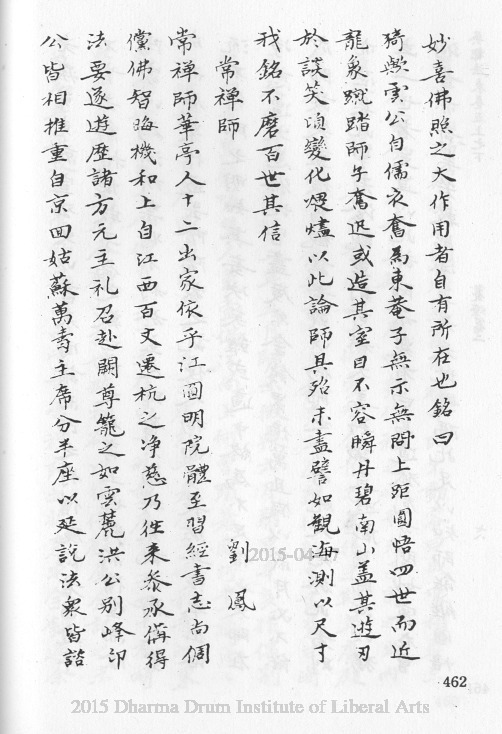 妙喜佛照之大作用者自有所在也銘曰
猗歟雲公自儒衣奮為東菴子無示無問上距圓悟四世而近
龍象蹴踏師乍奮迅或造其室目不容瞬丹碧南山盖其遊刃
於談笑頃變化煨燼以此論師具殆未盡譬如觀海測以尺寸
我銘不磨百世其信
常禪師
劉鳳
常禪師華亭人十二出家依乎江圓明院體至習經書志尚倜
儻佛智晦機和上自江西百丈遷杭之净慈乃徃来叅承備得
法要遂遊歴諸方元主礼召赴闕尊寵之如雲麓洪公別峰印
公皆相推重自京回姑蘇萬壽主席分半座以延說法衆皆諮
462
2015-04-17
2015 Dharma Drum Institute of Liberal Arts